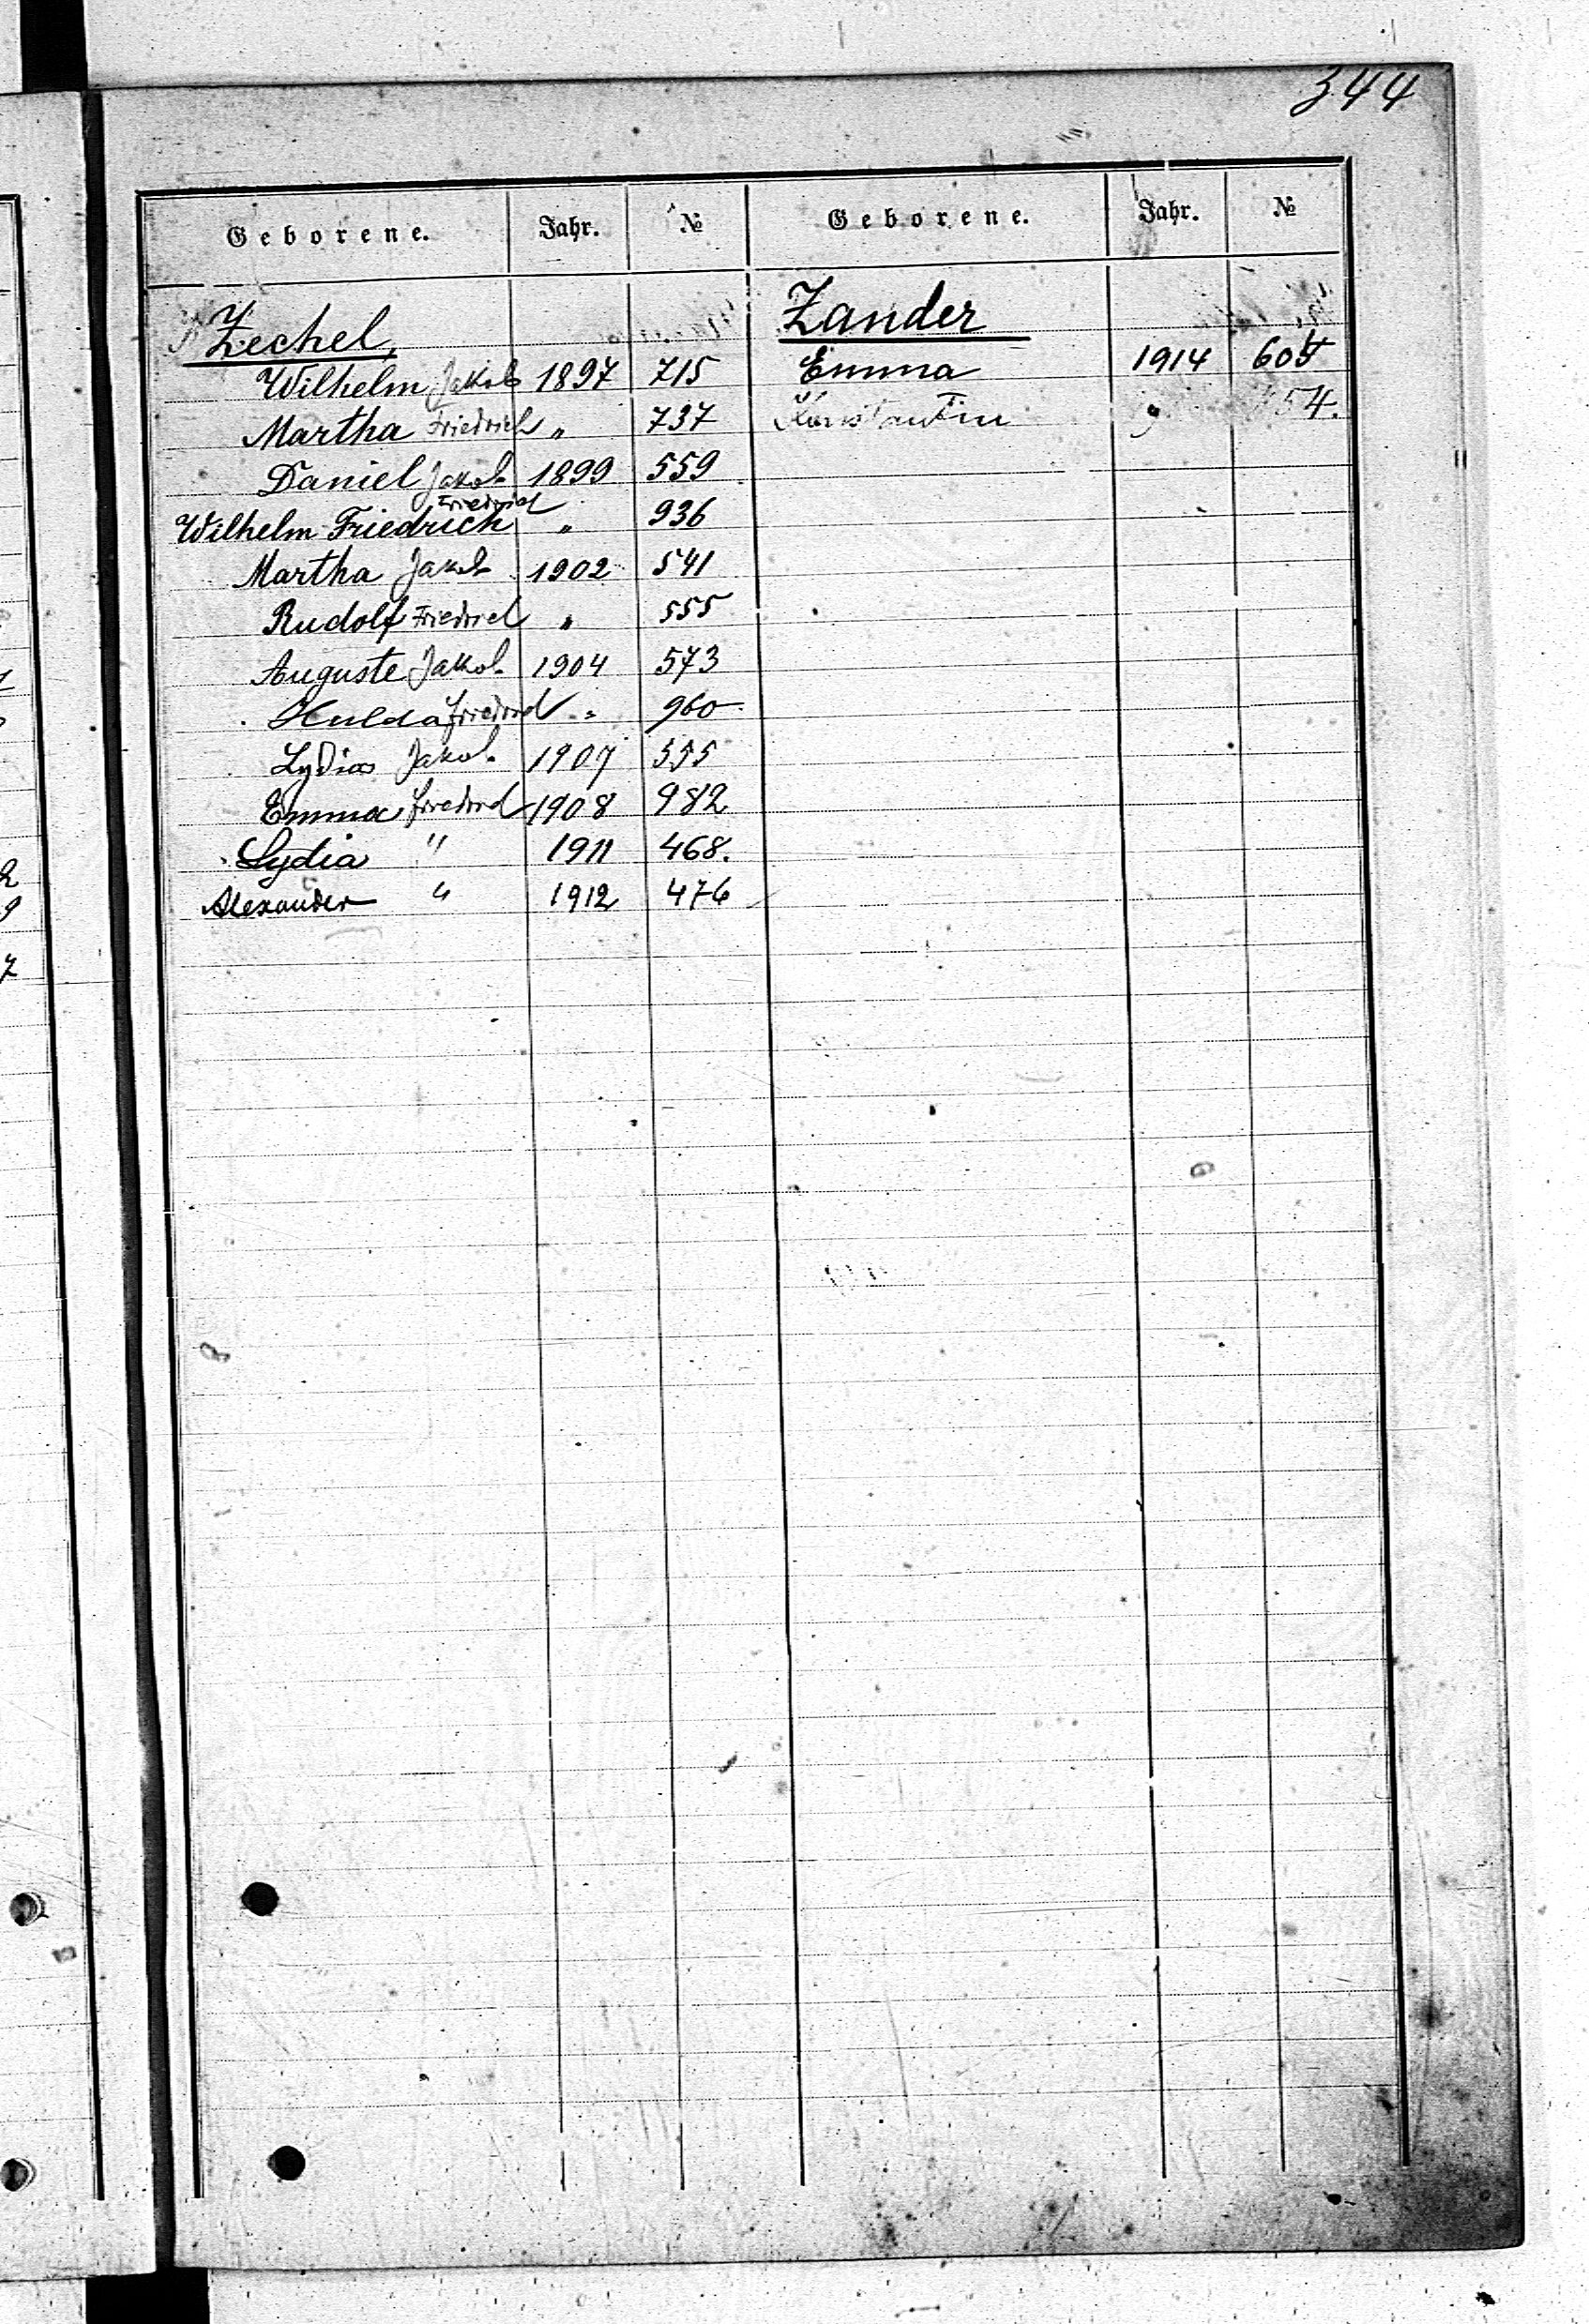 344
Geborene. Jahr. № Geborene. Jahr. №
Zechel,
Wilhelm Jakob 1897 715
Martha Friedrich " 737
Daniel Jakob 1899 559
Friedrich
Wilhelm Friedrich " 936
Martha Jakob 1902 541
Rudolf Friedrich " 555
Auguste Jakob 1904 573
Hulda Friedrich " 960
Lydia Jakob 1907 555
Emma Friedrich 1908 982
Lydia " 1911 468.
Alexander " 1912 476
Zander
Emma 1914
Konstantin